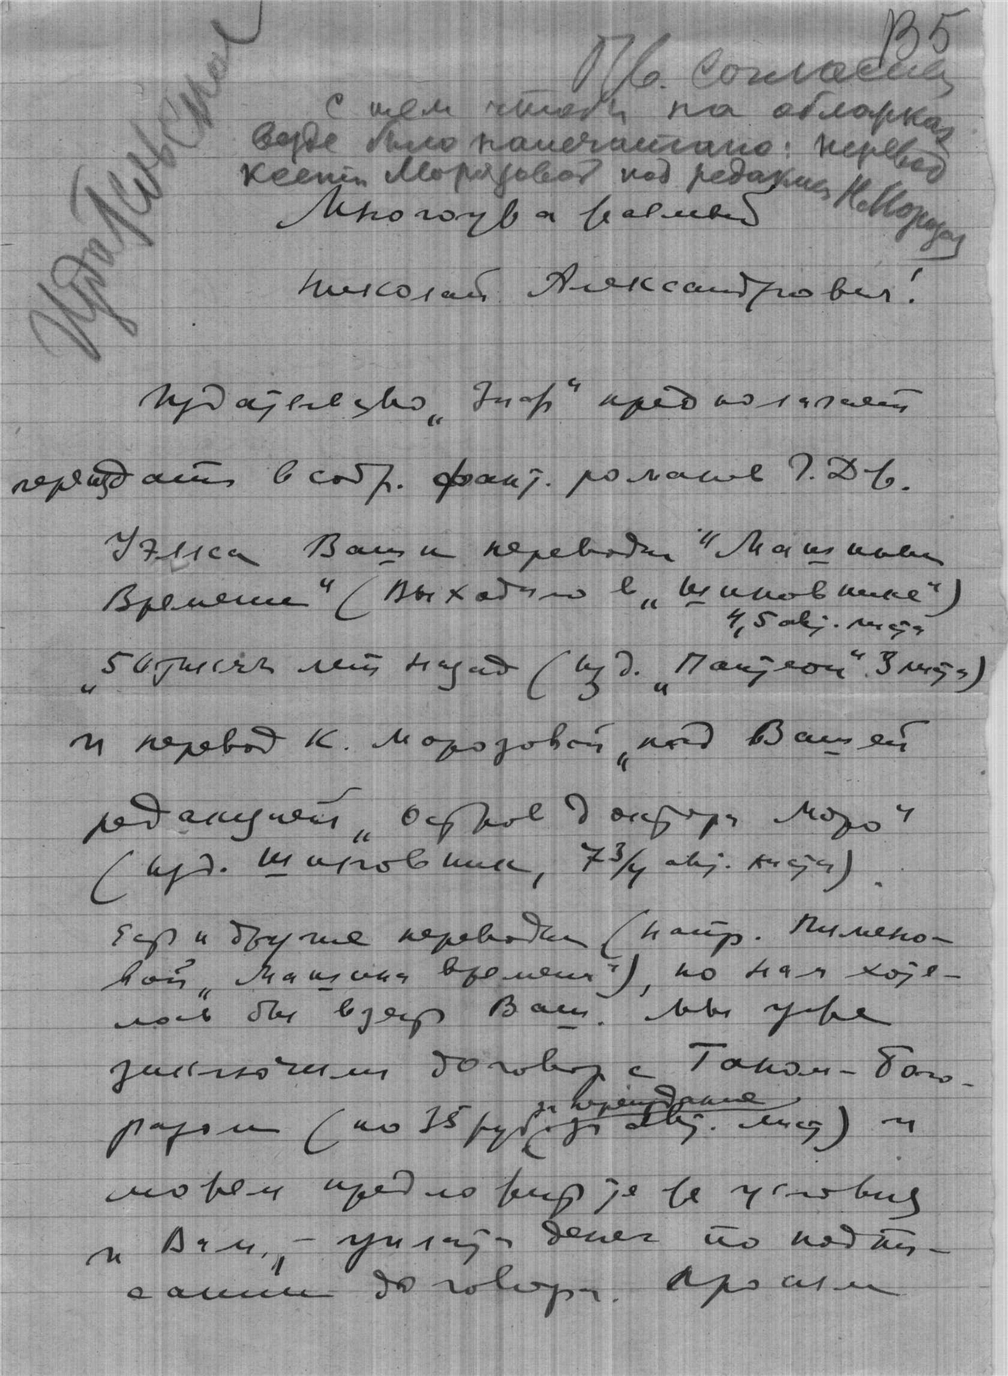 В5
Издательская
Отв. согласием
с тем чтобы на обложках
везде было напечатано: перевод
Ксении Морозовой под редакцией Н. Морозова
Многоуважаемый
Николай Александрович!
Издательство „Зиф" предполагает
переиздать в собр. фант. романов Г. Дж.
Уэллса Ваши переводы "Машины
Времени" (Выходило в „Шиповнике")
4,5 авт. листа
„50 тысяч лет назад (изд. „Пантеон". 3 листа)
и перевод К. Морозовой „под Вашей
редакцией „Остров Доктора Моро"
(изд. Шиповник, 7 3/4 авт. листа).
Есть и другие переводы (напр. Пимено-
вой „Машина времени"), но нам хоте-
лось бы взять Ваш. Мы уже
заключили договор с Таном-Бого-
разом (по 35 руб. за авт. лист) и
за переиздание
можем предложить те же условия
и Вам, – уплата денег по подпи-
сании договора. Просим